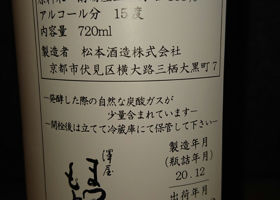 アルコール分 15度
内容量 720ml
製造者 松本酒造株式会社
京都市伏見区横大路三栖大黒町7
―発酵した際の自然な炭酸ガスが
少量含まれています―
―開栓後は立てて冷蔵庫にて保管して下さい―
製造年月
(瓶詰年月)
20.12
出荷年月
澤屋
まつ
もと